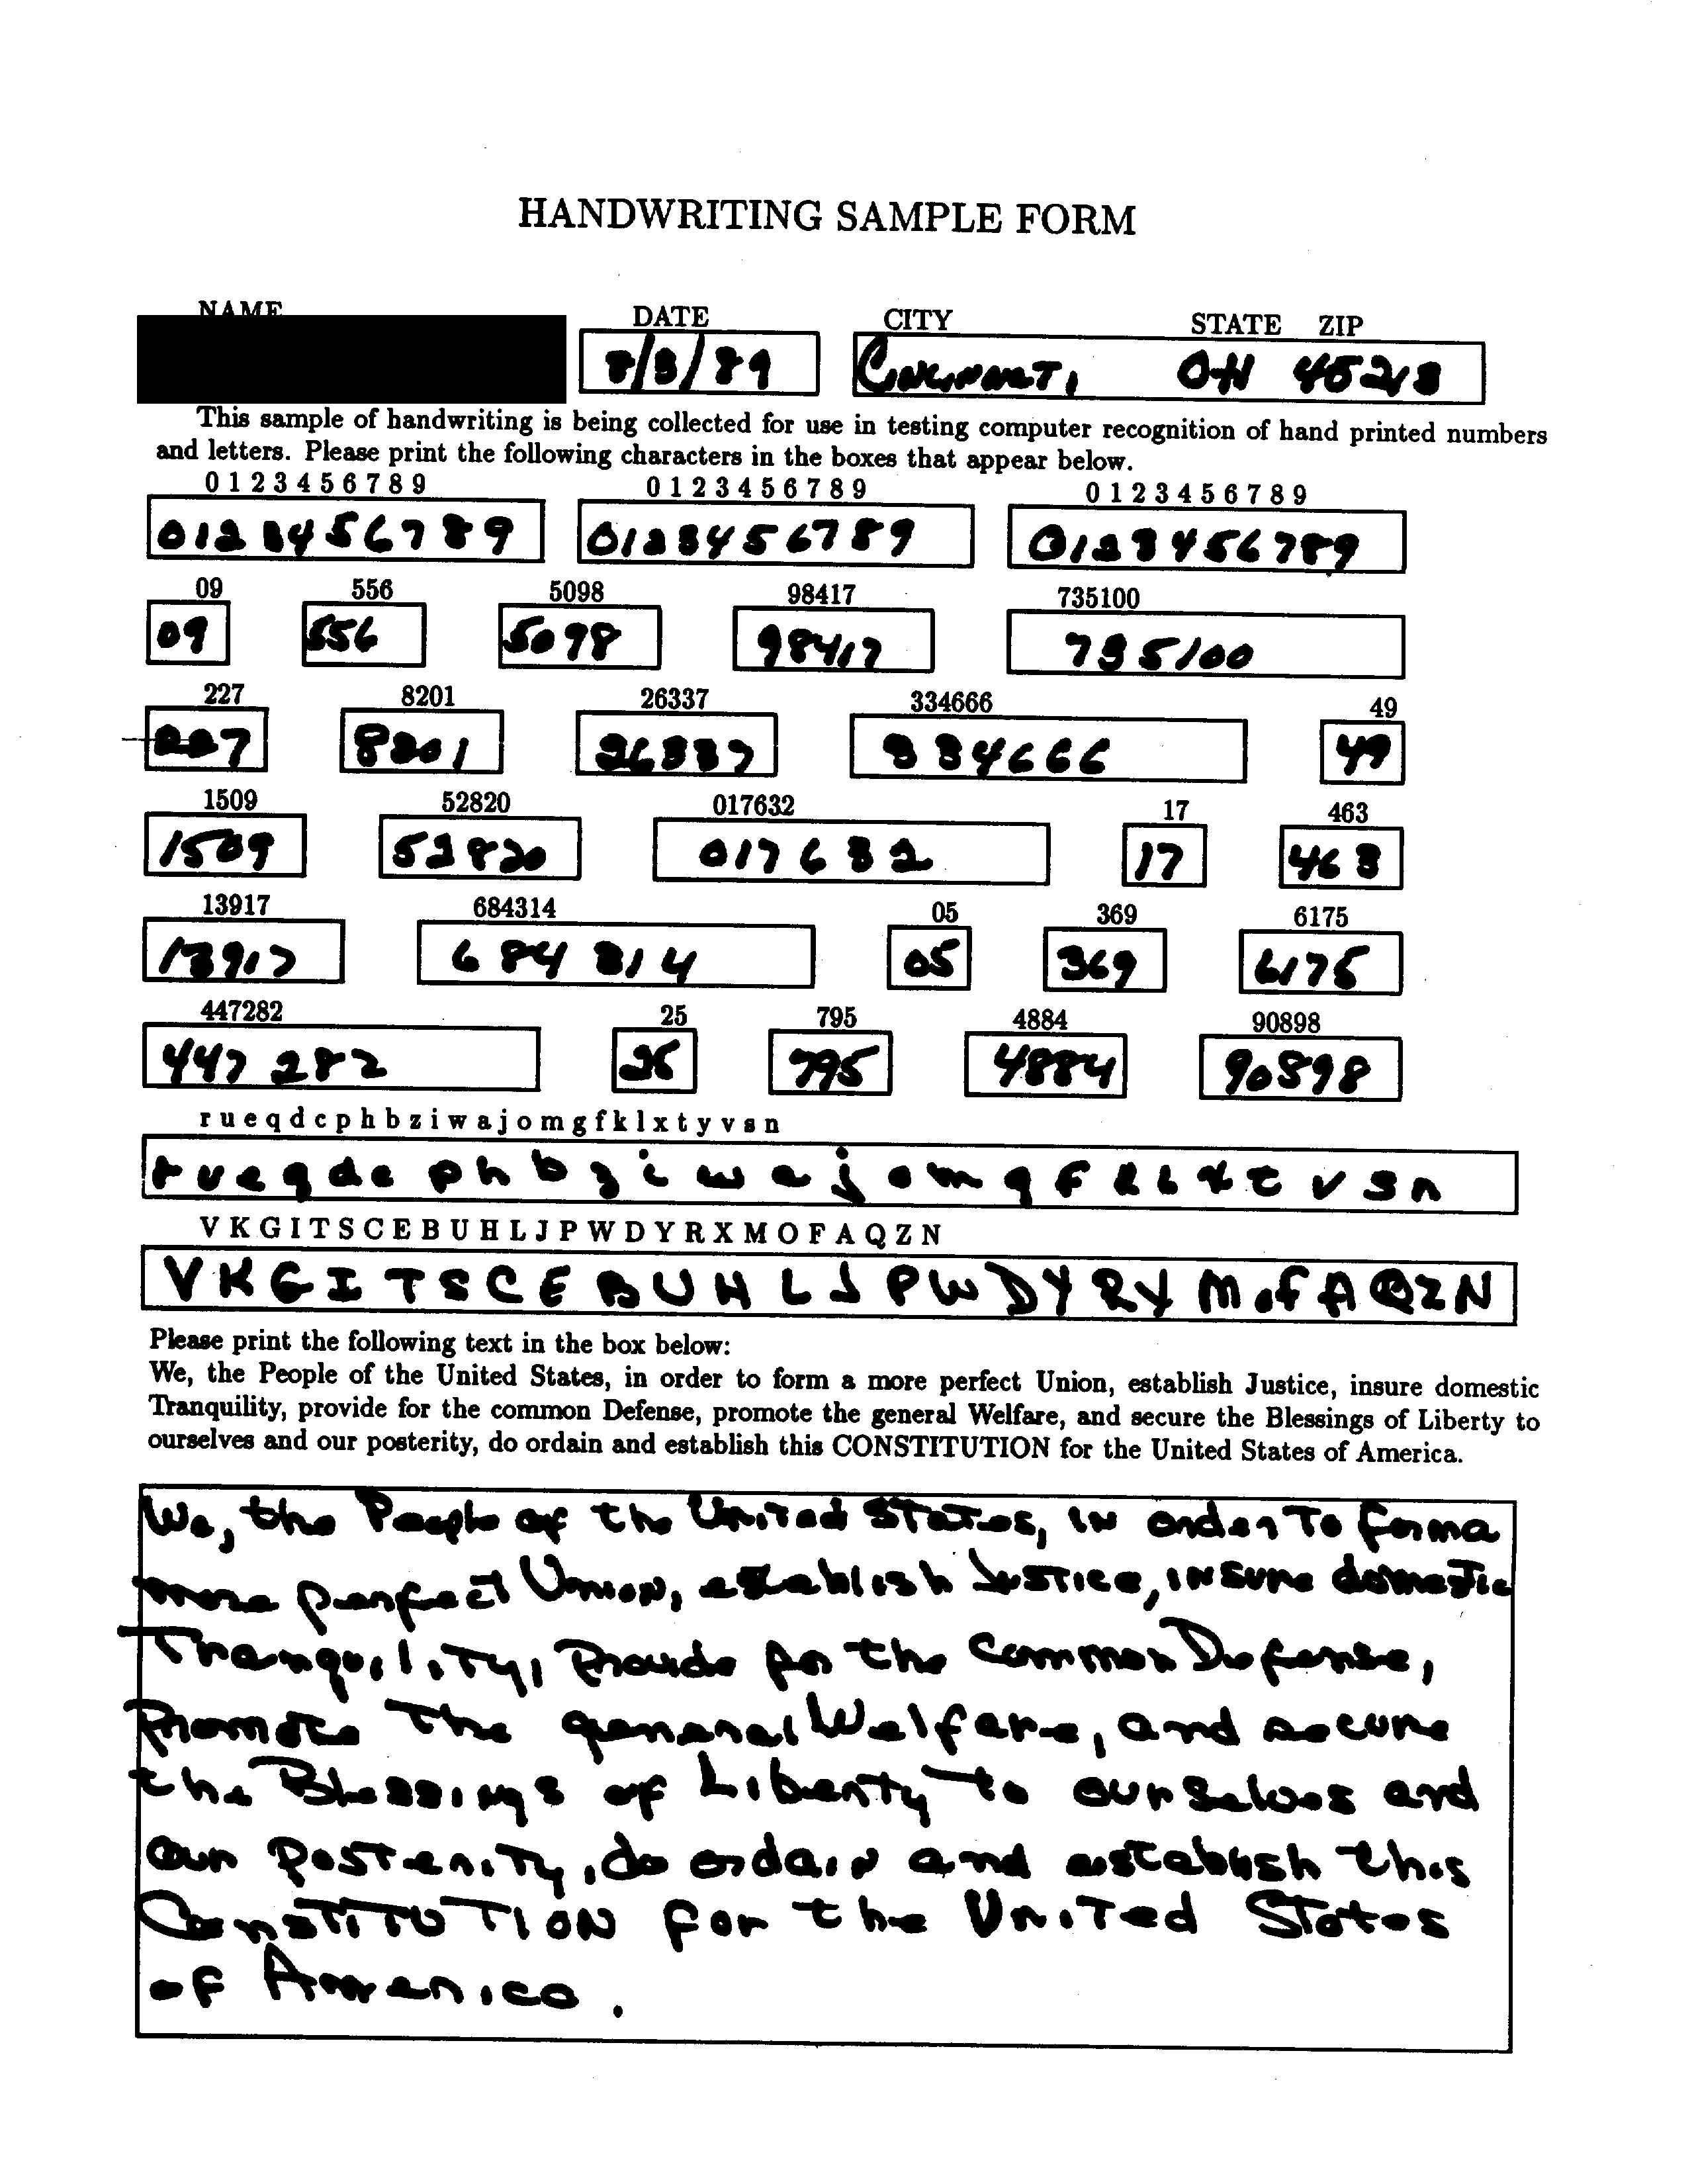 HANDWRITING SAMPLE FORM
NAME DATE CITY STATE ZIP
8/3/89 Cincinnati OH 45213
This sample of handwriting is being collected for use in testing computer recognition of hand printed numbers
and letters. Please print the following characters in the boxes that appear below.
0 1 2 3 4 5 6 7 8 9 0 1 2 3 4 5 6 7 8 9 0 1 2 3 4 5 6 7 8 9
0123456789 0123456789 0123456789
09 556 5098 98417 735100
09 556 5098 98417 735100
227 8201 26337 334666 49
227 8201 26337 334666 49
1509 52820 017632 17 463
1509 52820 017632 17 463
13917 684314 05 369 6175
13917 684314 05 369 6175
447282 25 795 4884 90898
447282 25 795 4884 90898
r u e q d c p h b z i w a j o m g f k l x t y v s n
r u e q d c p h b z i w a j o m g f k l x t v s n
V K G I T S C E B U H L J P W D Y R X M O F A Q Z N
V K G I T S C E B U H L J P W D Y R X M O F A Q Z N
Please print the following text in the box below:
We, the People of the United States, in order to form a more perfect Union, establish Justice, insure domestic
Tranquility, provide for the common Defense, promote the general Welfare, and secure the Blessings of Liberty to
ourselves and our posterity, do ordain and establish this CONSTITUTION for the United States of America.
We, the People of the United States, in order To form a
more perfect Union, establish Justice, insure domestic
Tranquility, Provide for the common Defense,
Promote The general Welfare, and secure
the Blessings of Liberty to ourselves and
our Posterity, do ordain and establish this
ConSTITUTION for the United States
of America.